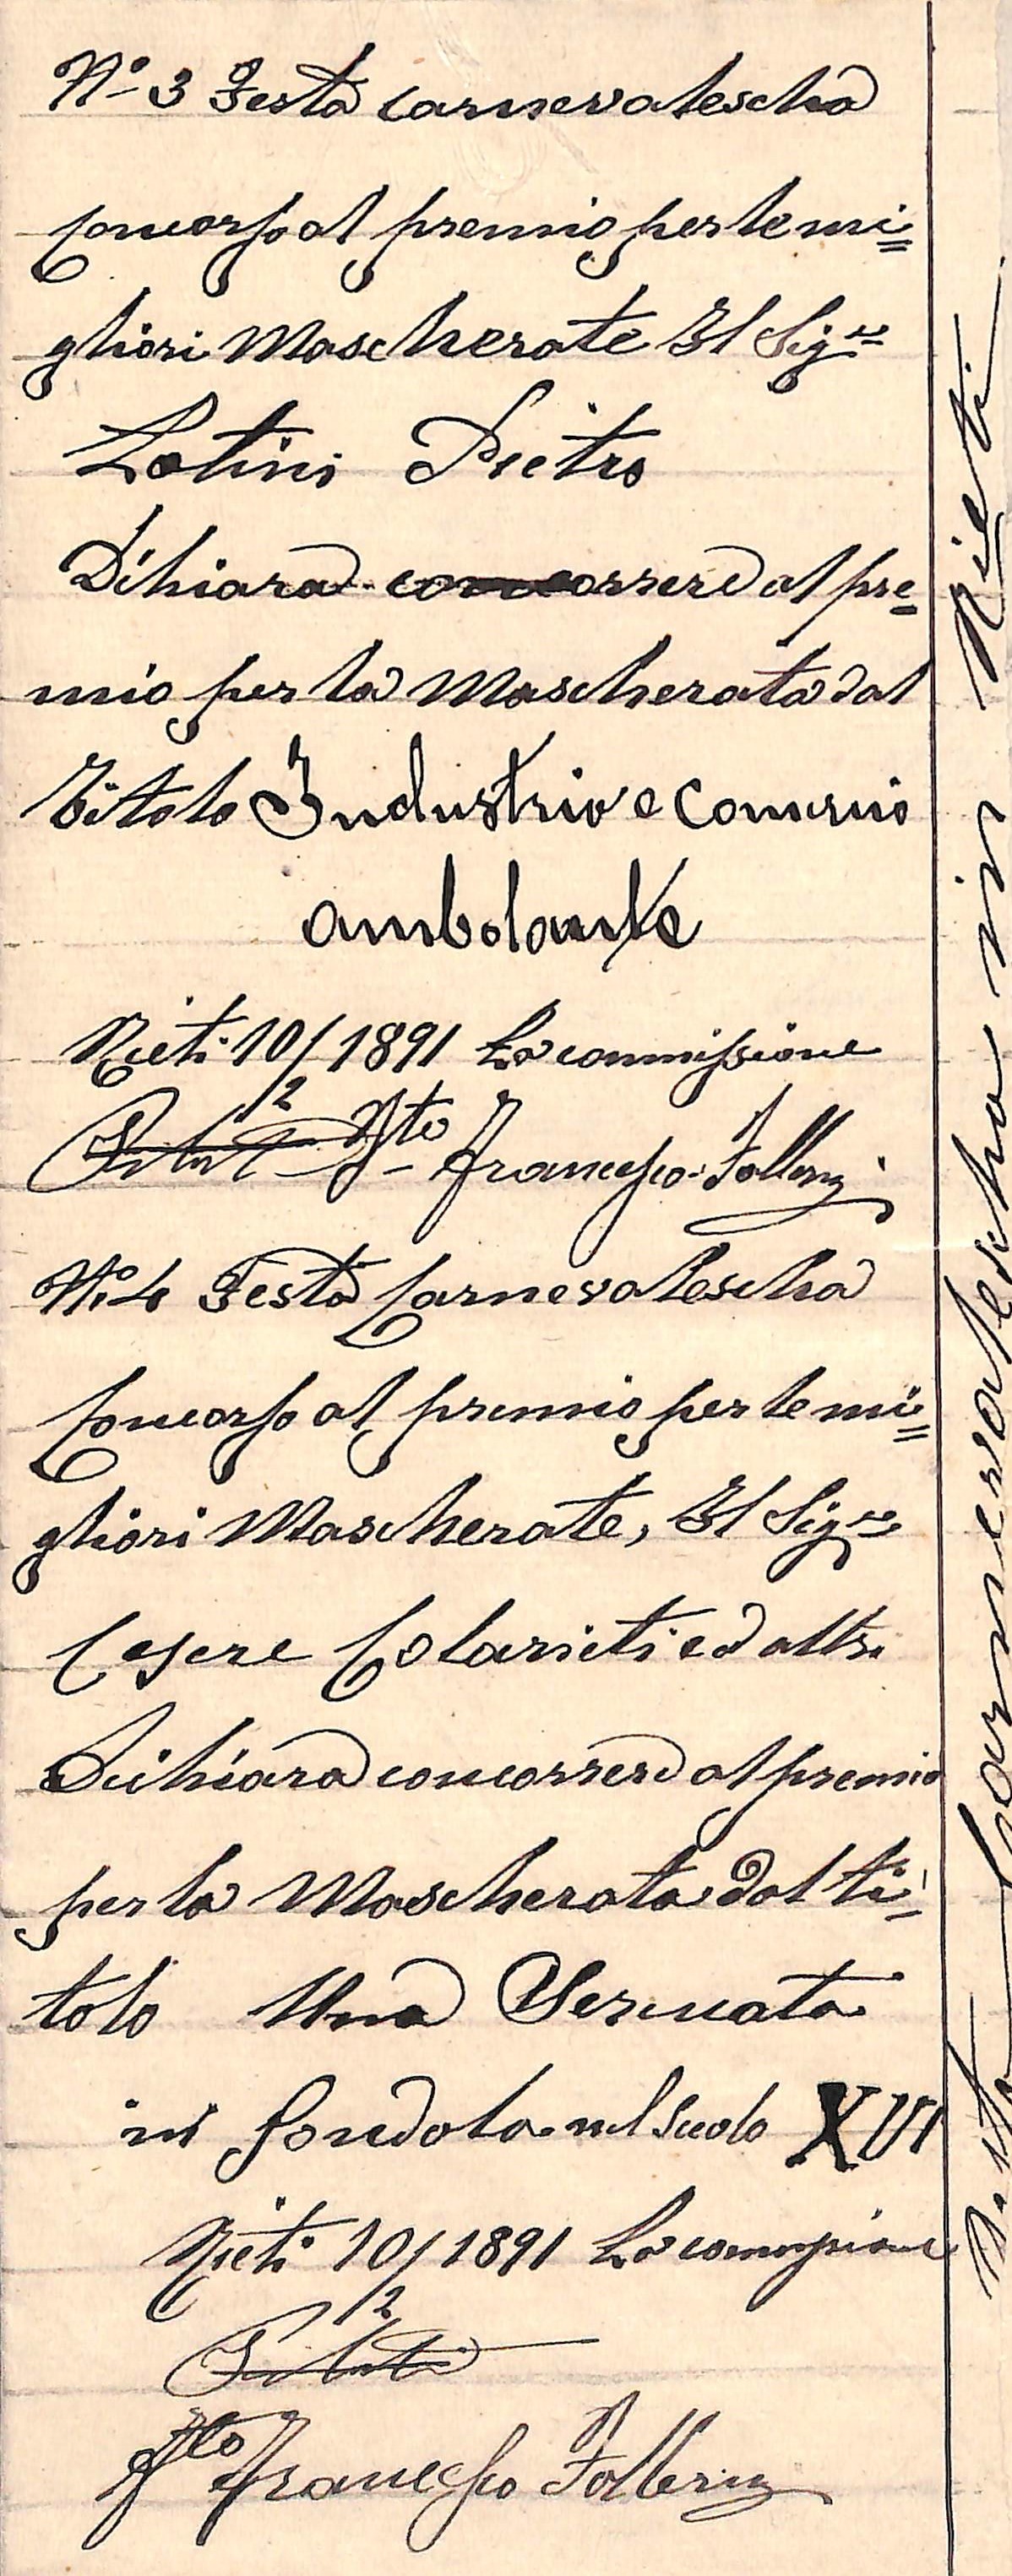 N° 3 Festa carnevalescha
Concorso al premio per le mi=
gliori Mascherate Il Sigre
Latini Pietro
Dihiara concorrere al pre=
mio per la Mascherata dal
Titolo Industria e Comercio
ambolante
Rieti 10/2 1891 La commissione
Fto Francesco
N° 4 Festa Carnevalescha
Concorso al premio per le mi=
gliori Mascherate, Il Sigre
Cesere Colarieti ed altri
Dichiara concorrere al premio
per la Mascherata dal ti=
tolo Una Serenata
in Gondola nel Secolo XVI
Rieti 10/2 1891 La commissione
Fto Francesco
Festa Carnevalescha in Rieti